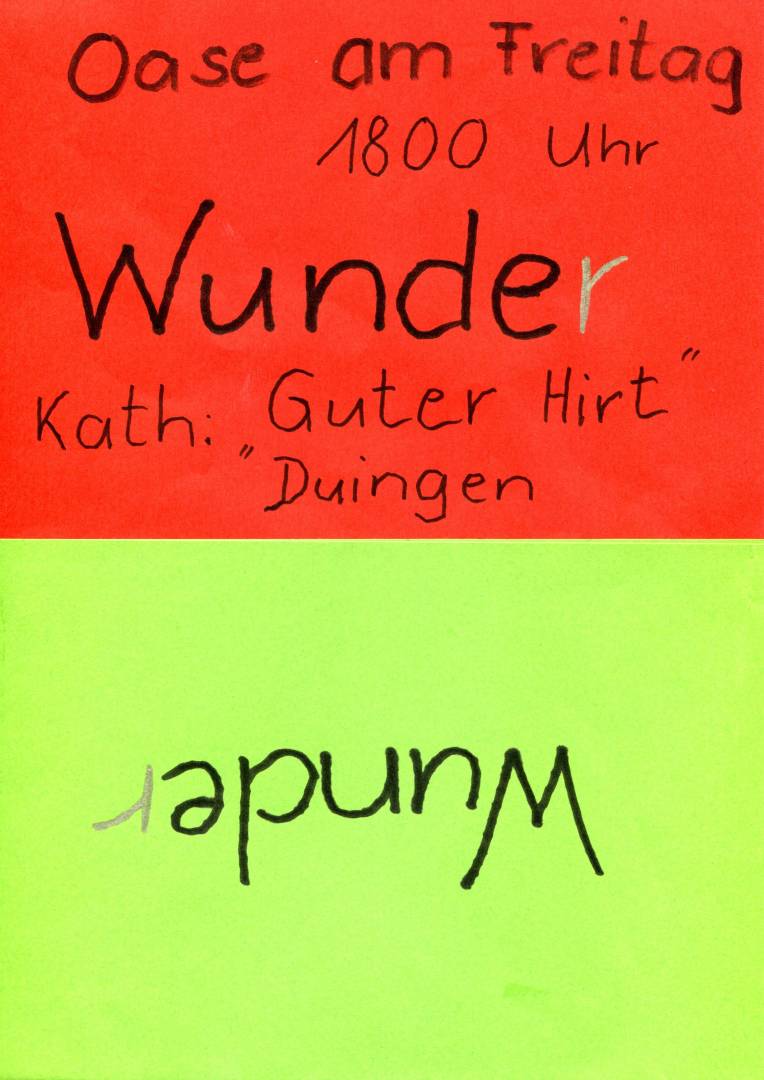 Oase am Freitag
1800 Uhr
Wunder
Kath: "Guter Hirt"
Duingen
Wunder